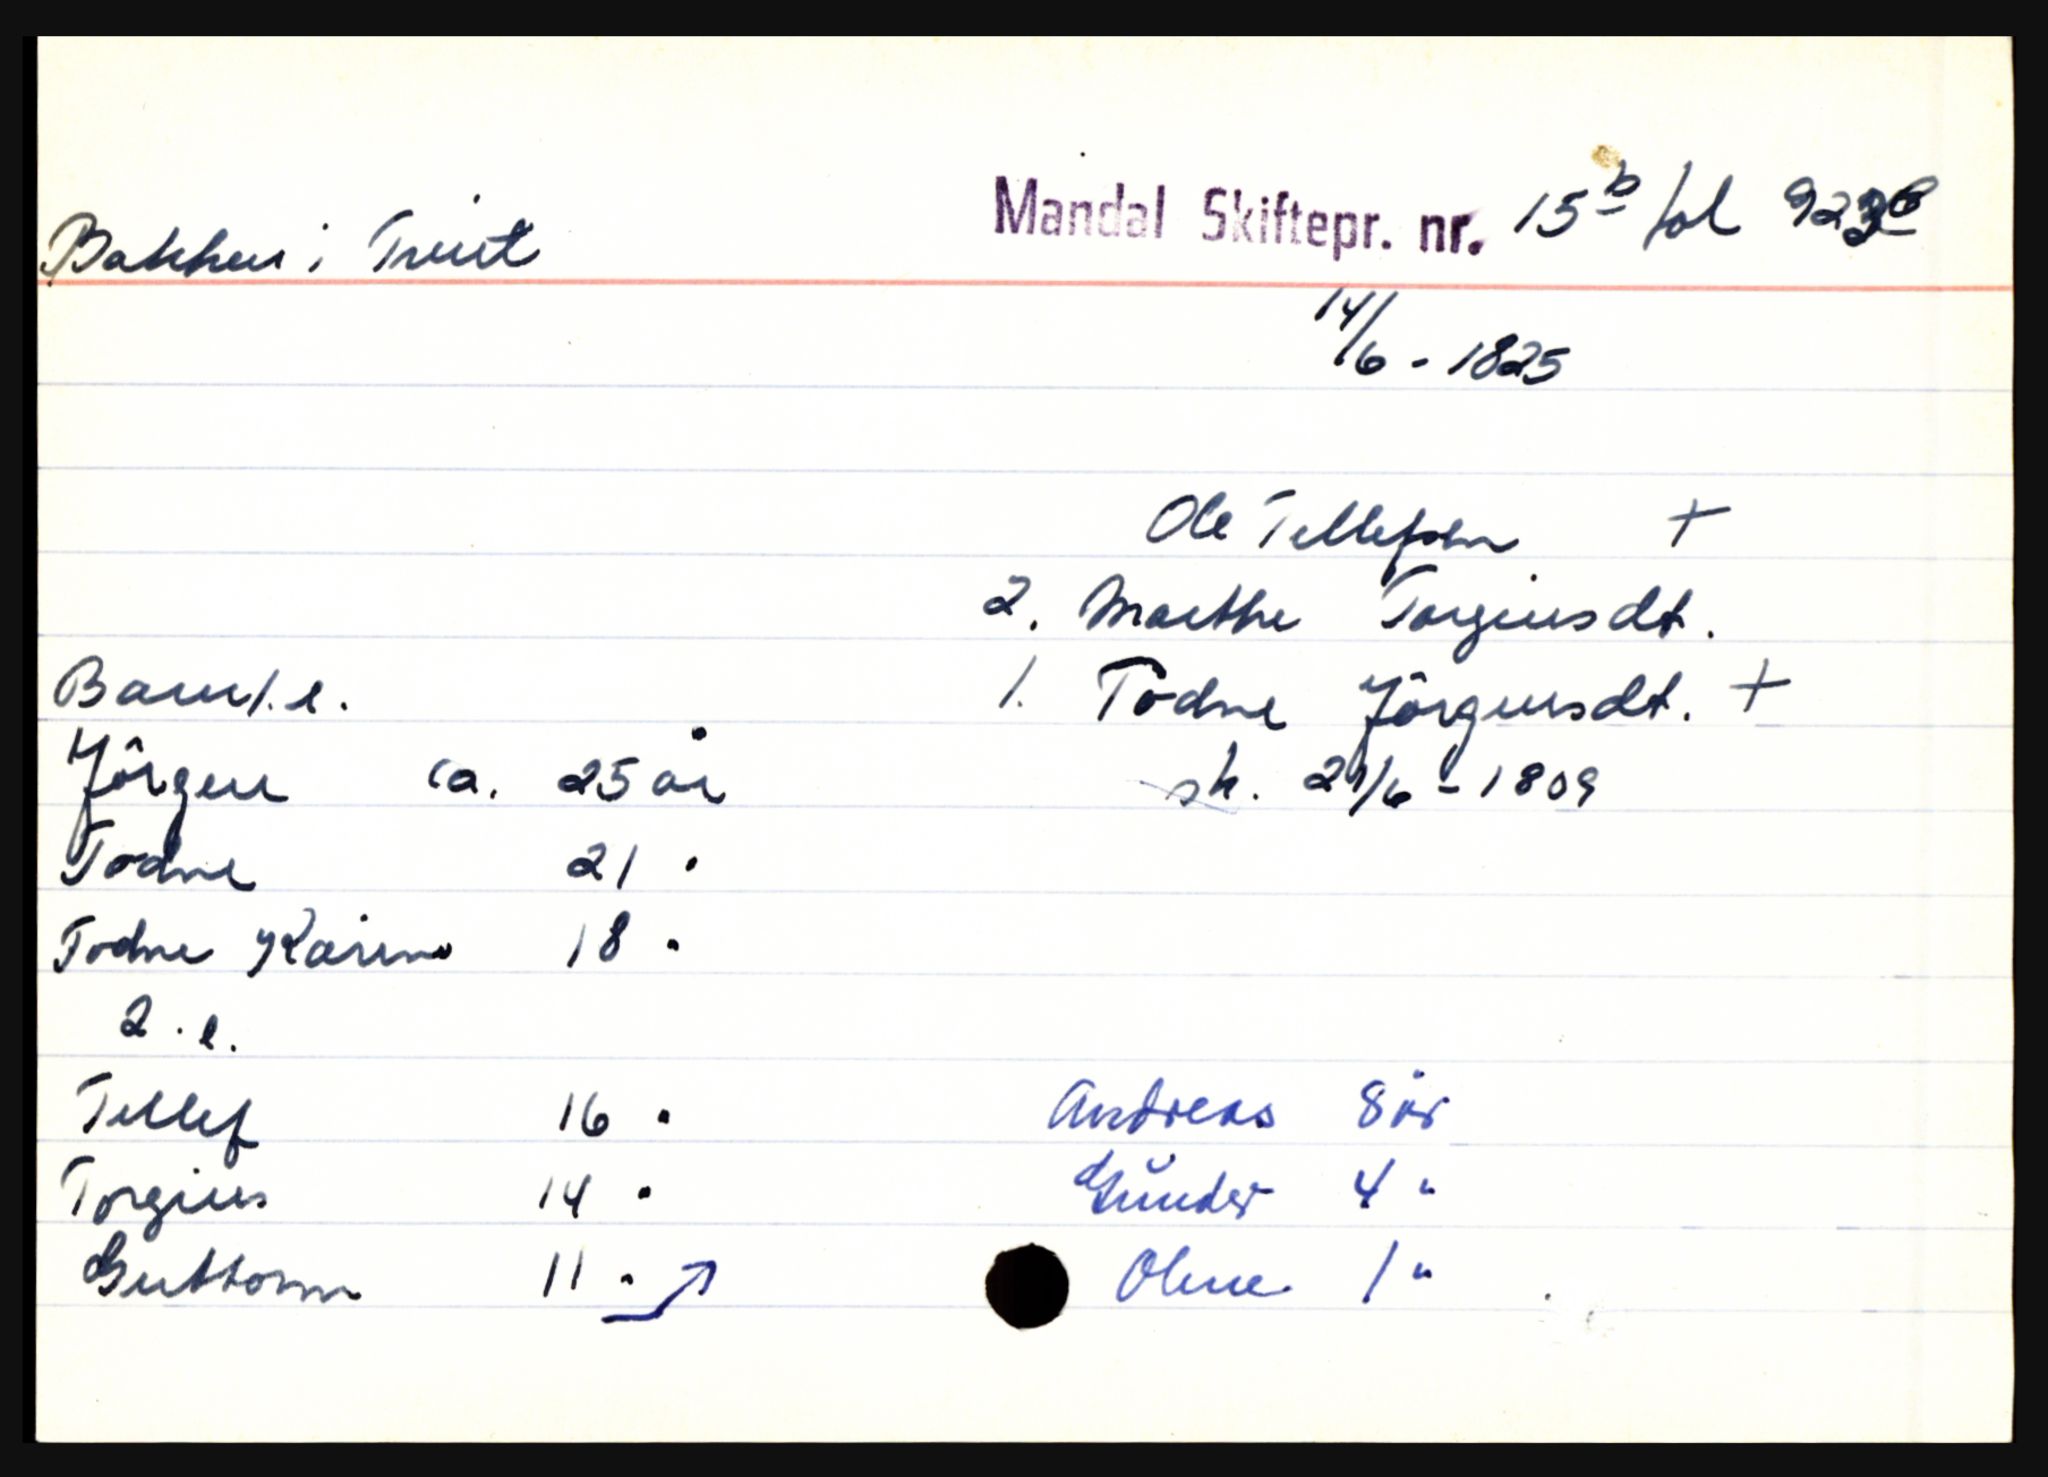 Bakken i Tveit Mandal Skiftepr. nr. 15 b fol
14/6 - 1825
Ole Tellefsen +
2. Marthe Torgiusdt.
Barn 1. e. 1. Todne Jörgensdt. +
Jörgen ca. 25 år sk. 21/6 - 1809
Todne 21 "
Todne Karine 18 "
2. e.
Tellef 16 " Andreas 8 år
Torgius 14 " Gunder 4 "
Guttorm 11 " Olene 1 "